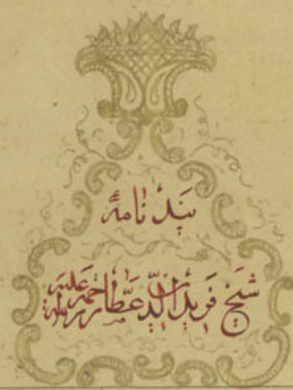 پند نامهٔ
شیخ فرید الدین عطار رحمة الله علیه